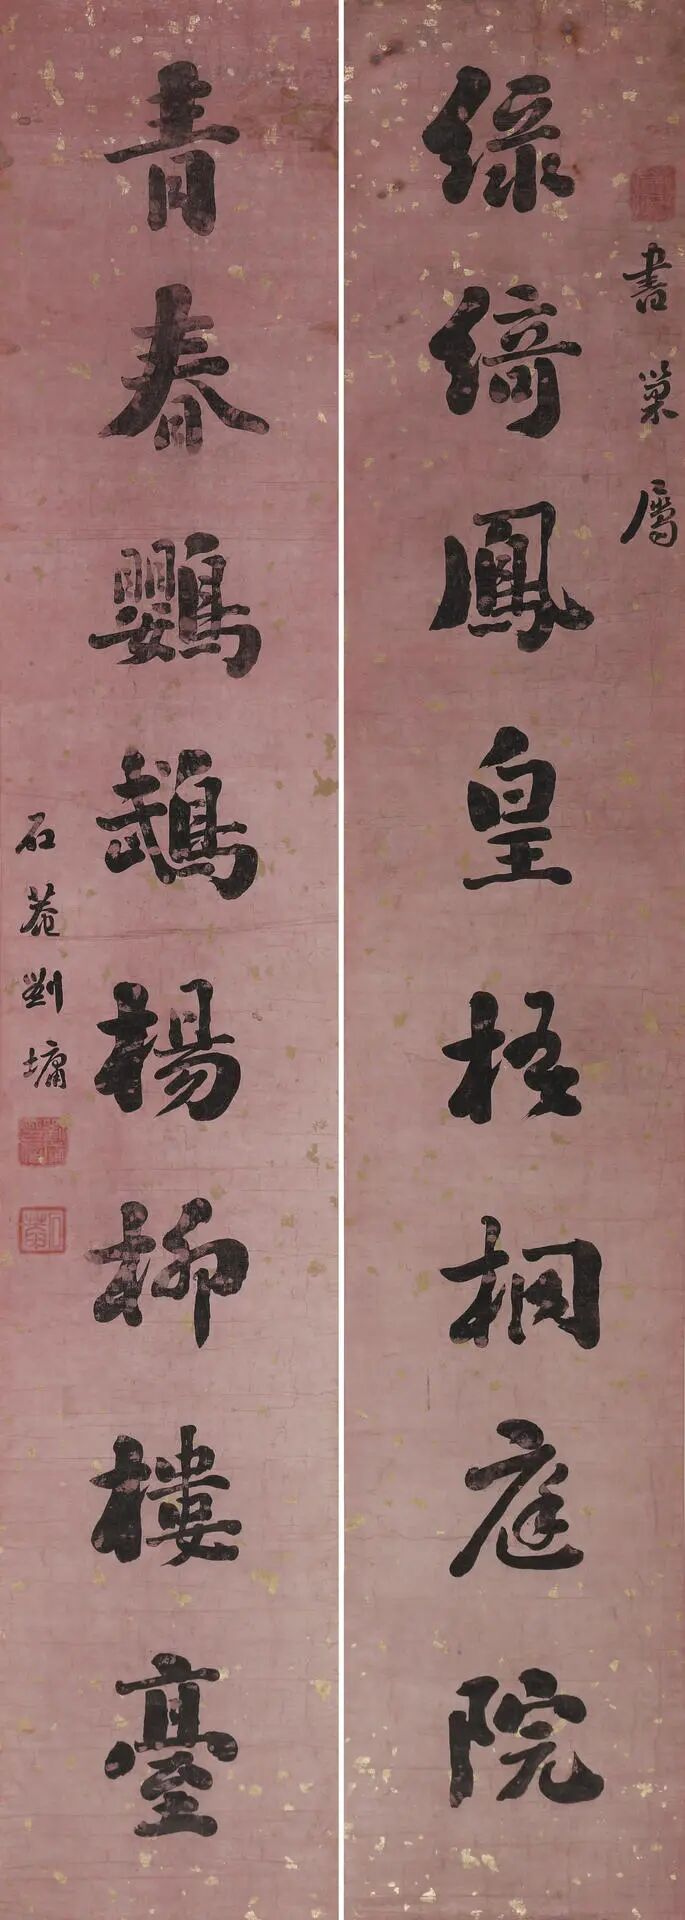 書巢屬
綠綺鳳皇梧桐庭院
青春鸚鵡楊柳樓臺
石菴劉墉